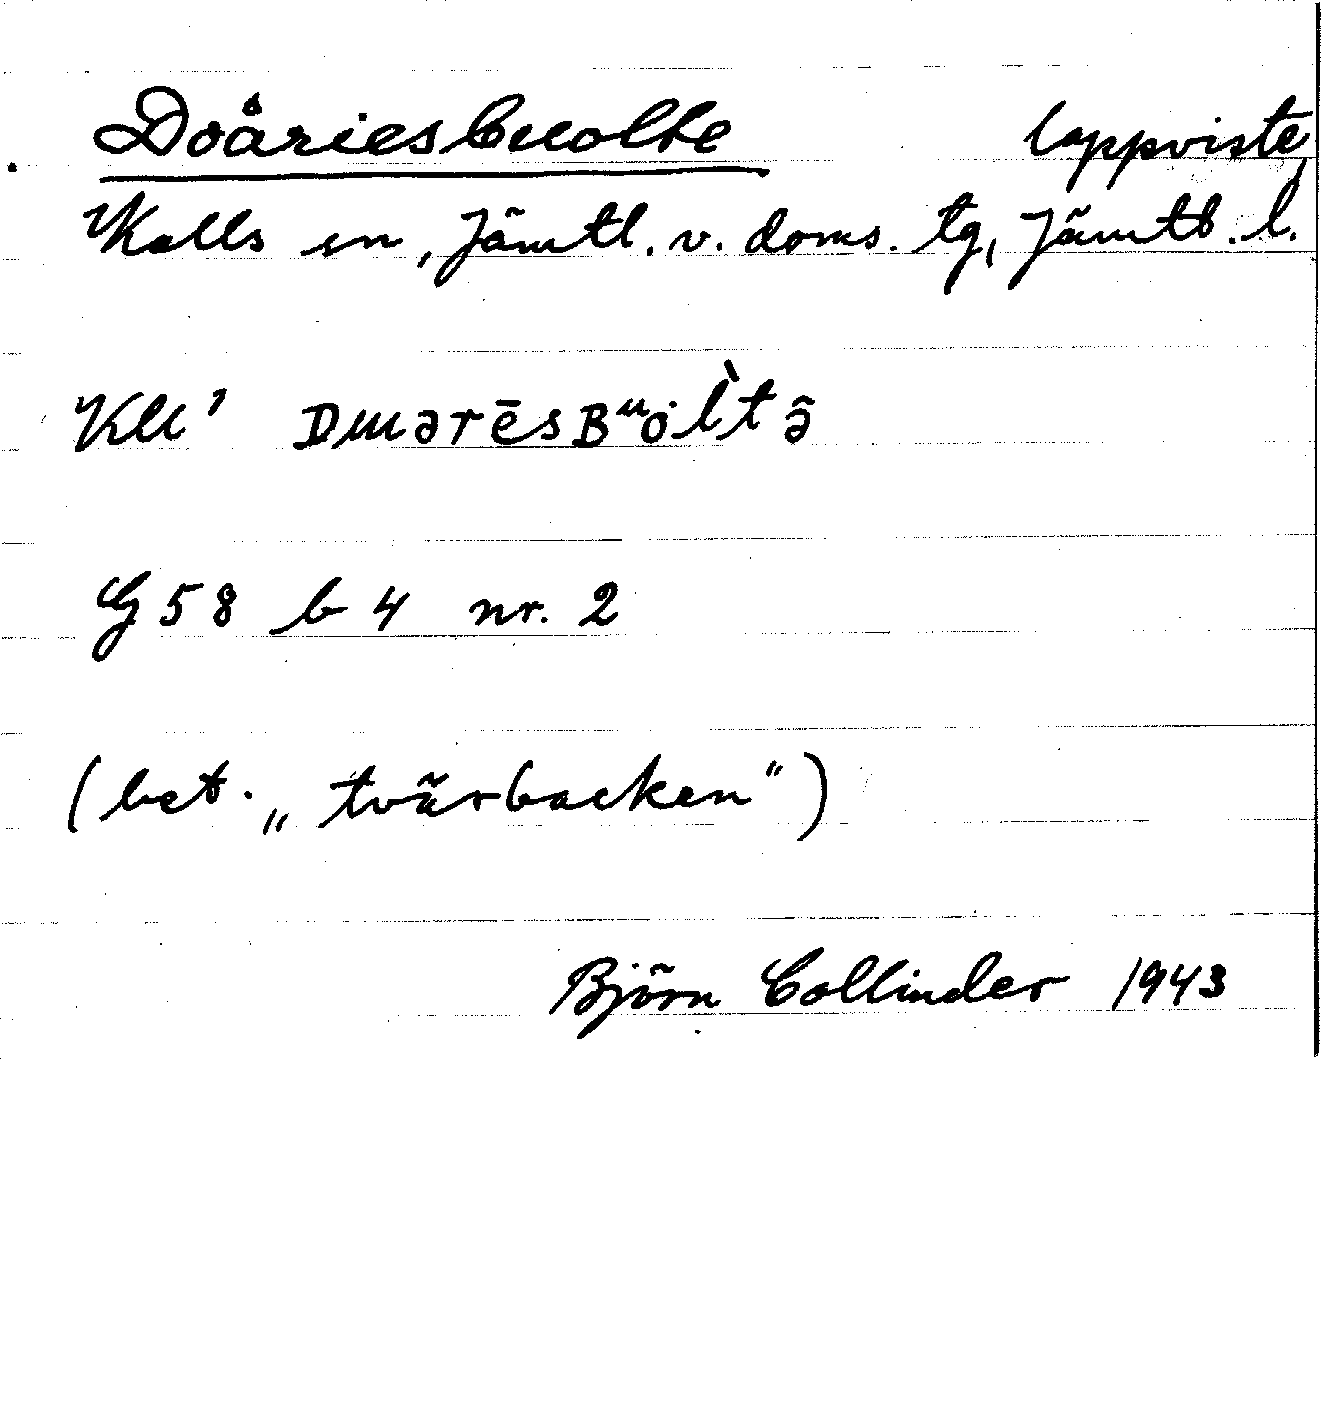 Doåriesbuolte lappviste,
Kalls sn, Jämtl. v. doms. tg, Jämtl. l.
Kll' Dɯɯərēsʙᵘȯl̀tə̂
G 58 b 4 nr. 2
(bet. „tvärbacken")
Björn Collinder 1943